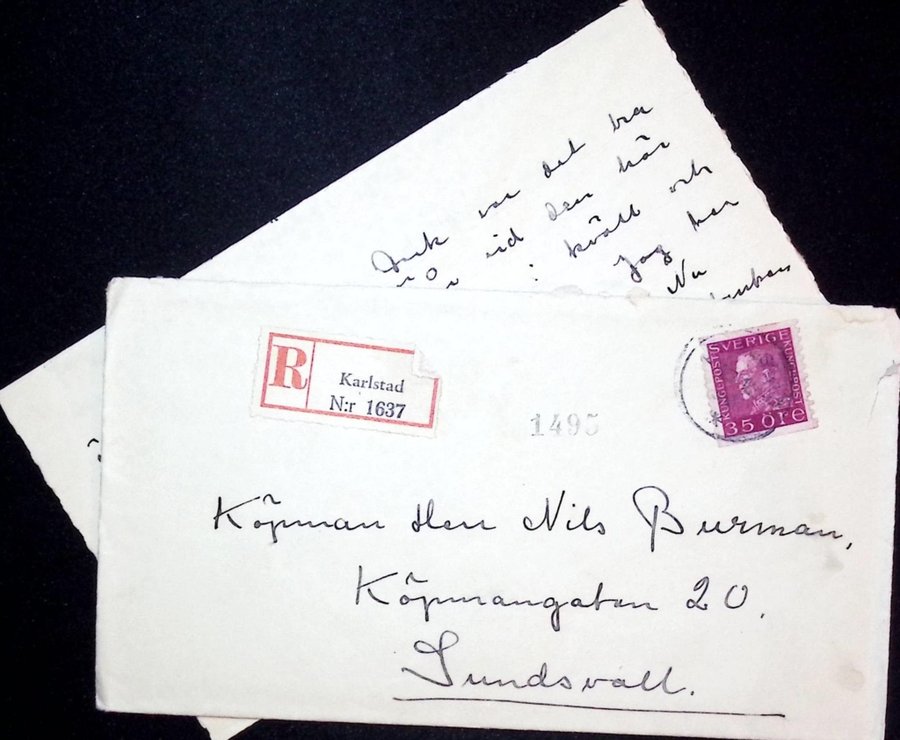 var det bra
vid den här
i kväll och
Jag har
Nu
R
Karlstad
N:r 1637
1495
SVERIGE
KUNGL.POST
35 ÖRE
Köpman Herr Nils Burman,
Köpmangatan 20.
Sundsvall.